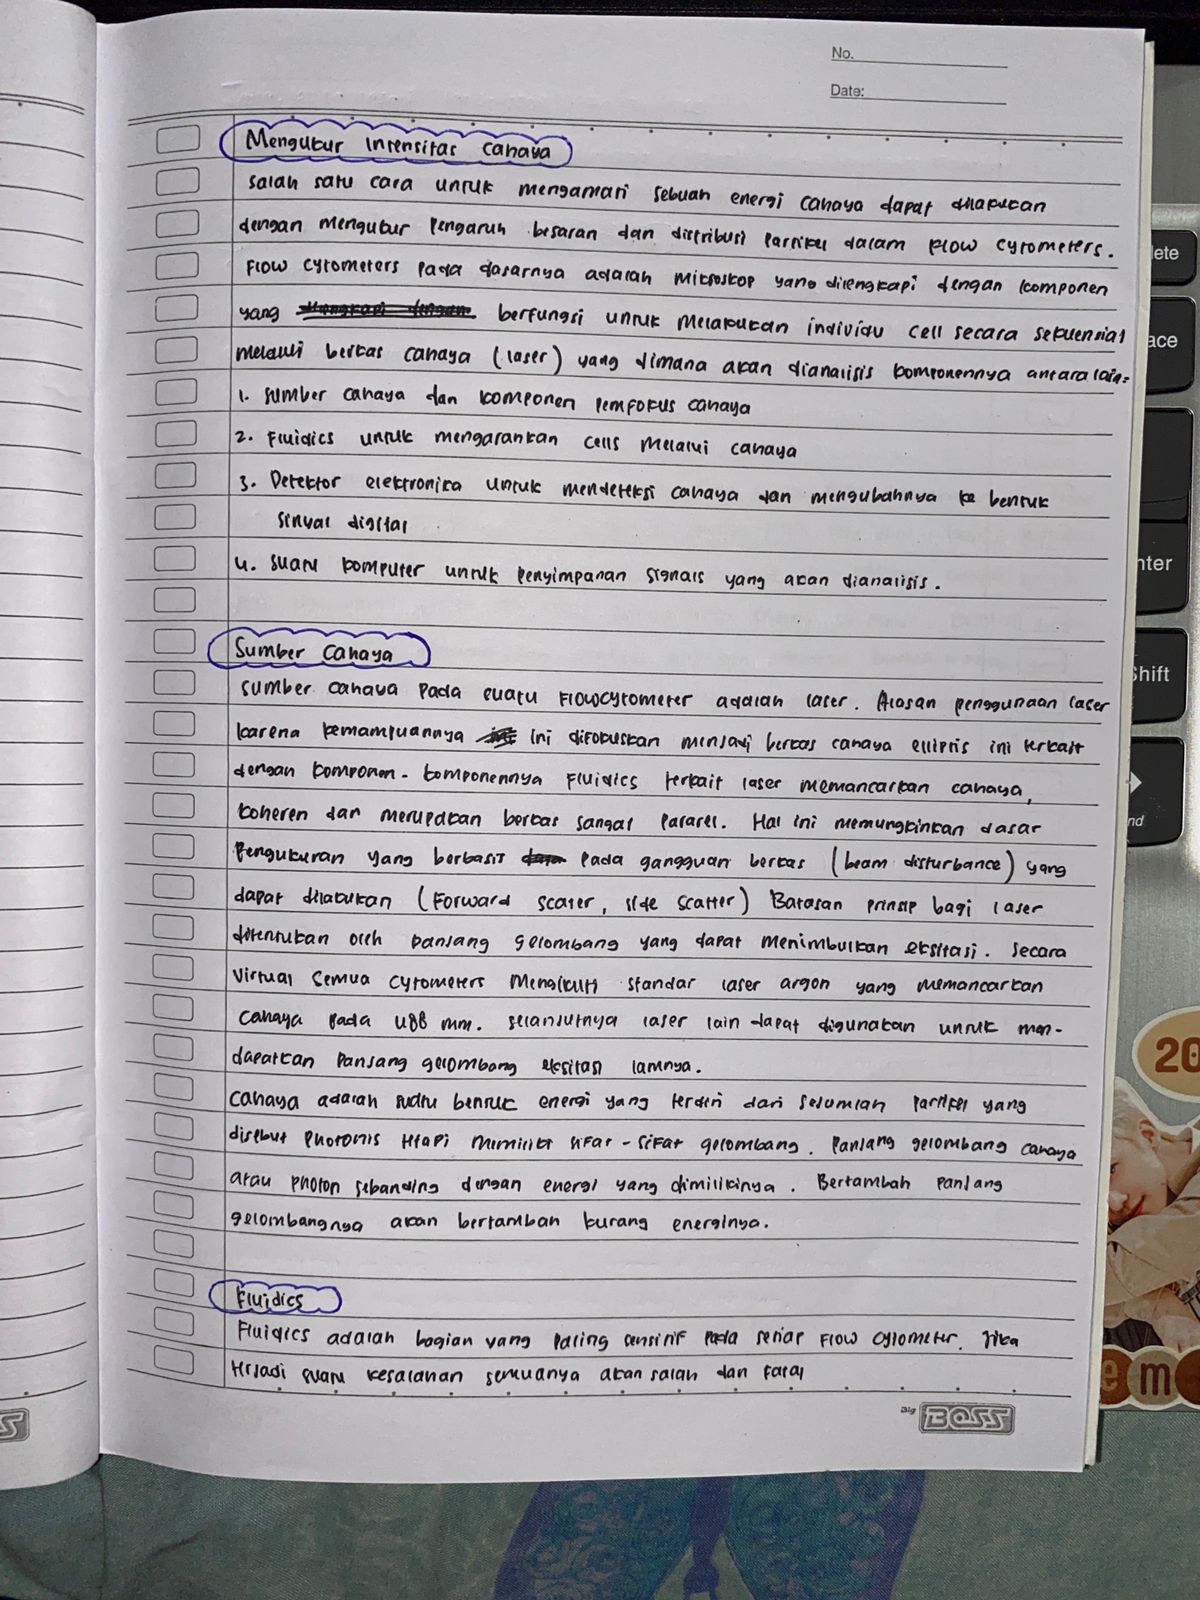 No.
Date:
Mengukur Intensitas Cahaya
Salah satu cara untuk mengamati sebuah energi cahaya dapat dilakukan
dengan mengukur pengaruh besaran dan distribusi partikel dalam flow cytometers.
Flow cytometers pada dasarnya adalah mikroskop yang dilengkapi dengan komponen
yang berfungsi untuk melakukan individu cell secara sekuensial
melalui berkas cahaya (laser) yang dimana akan dianalisis komponennya antara lain:
1. Sumber cahaya dan komponen pemfokus cahaya
2. Fluidics untuk mengarahkan cells melalui cahaya
3. Detektor elektronika untuk mendeteksi cahaya dan mengubahnya ke bentuk
sinyal digital
4. Suatu komputer untuk penyimpanan signals yang akan dianalisis.
Sumber Cahaya
Sumber cahaya pada suatu flowcytometer adalah laser. Alasan penggunaan laser
karena kemampuannya ini difokuskan menjadi berkas cahaya elliptis ini terkait
dengan komponen-komponennya fluidics terkait laser memancarkan cahaya,
koheren dan merupakan berkas sangat pararel. Hal ini memungkinkan dasar
Pengukuran yang berbasis pada gangguan berkas (beam disturbance) yang
dapat dilakukan (Forward scater, side scatter) Batasan prinsip bagi laser
ditentukan oleh panjang gelombang yang dapat menimbulkan eksitasi. Secara
Virtual semua cytometers mengikuti standar laser argon yang memancarkan
cahaya pada 488 mm. selanjutnya laser lain dapat digunakan untuk men-
dapatkan panjang gelombang eksitasi lamnya.
Cahaya adalah suatu bentuk energi yang terdiri dari sejumlah partikel yang
disebut photonis tetapi memiliki sifat-sifat gelombang. Panjang gelombang cahaya
atau photon sebanding dengan energi yang dimilikinya. Bertambah panjang
gelombangnya akan bertambah kurang energinya.
Fluidics
Fluidics adalah bagian yang paling sensitif pada setiap flow cytometer. Jika
terjadi suatu kesalahan semuanya akan salah dan fatal
Big BOSS
lete
ace
nter
Shift
nd
20
em